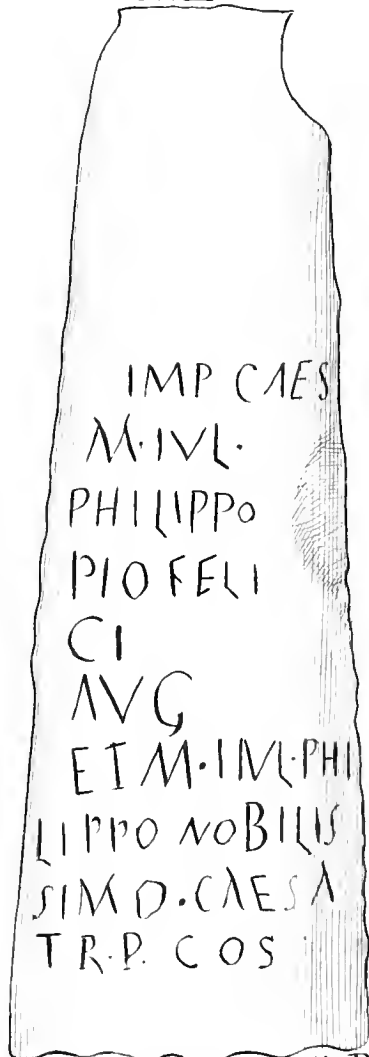 IMP CAES
M·IVL·
PHILIPPO
PIO FELI
CI
AVG
ET M·IVL·PHI
LIPPO NOBILIS
SIMO·CAESA
TR·P· COS